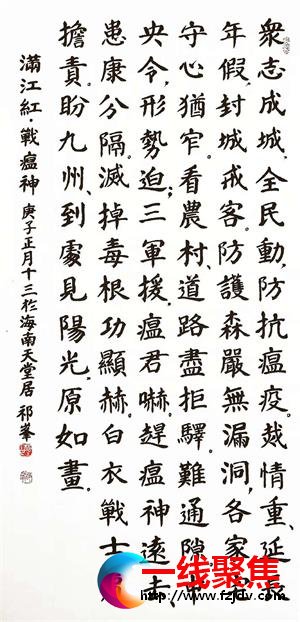 眾志成城，全民動，防抗瘟疫。烖情重、延長
年假，封城戒客。防護森嚴無漏洞，各家
守心猶窄。看農村、道路盡拒驛。難通隙。中
央令，形勢迫；三軍援，瘟君嚇。趕瘟神遠去，
患康分隔。滅掉毒根功顯赫。白衣戰士
擔責。盼九州、到處見陽光，原如畫。
滿江紅·戰瘟神 庚子正月十三於海南天堂居 祁峯
一线聚焦
http://www.fzjdv.com